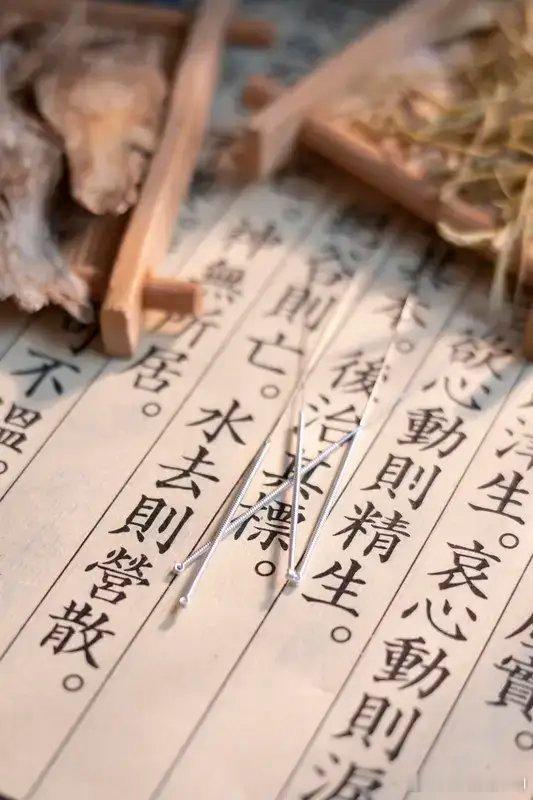 實。
津生。哀心動則淚
欲心動則精生。
其本。後治其標。
谷則亡。水去則營散。
神無所居。
可不溫。